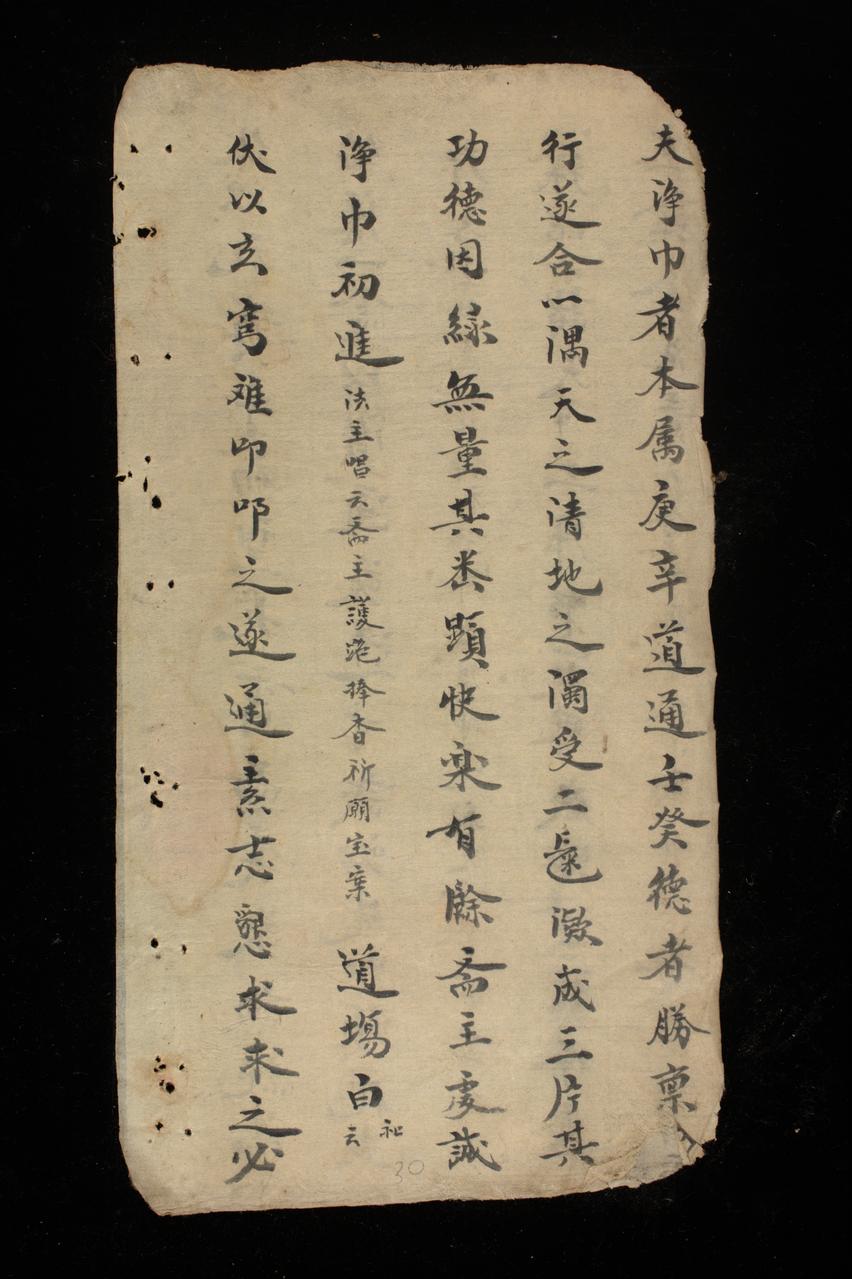 夫浄巾者本属庚辛道通壬癸德者勝禀
行遂合以湡天之清地之濁受二㲀澂成三片其
功德因緣無量其類快楽有餘斋主虔誠
浄巾初進法主唱云斋主護跪捧香祈願宝案道場白祉云
伏以玄穹难叩叩之遂通素志懇求求之必
30